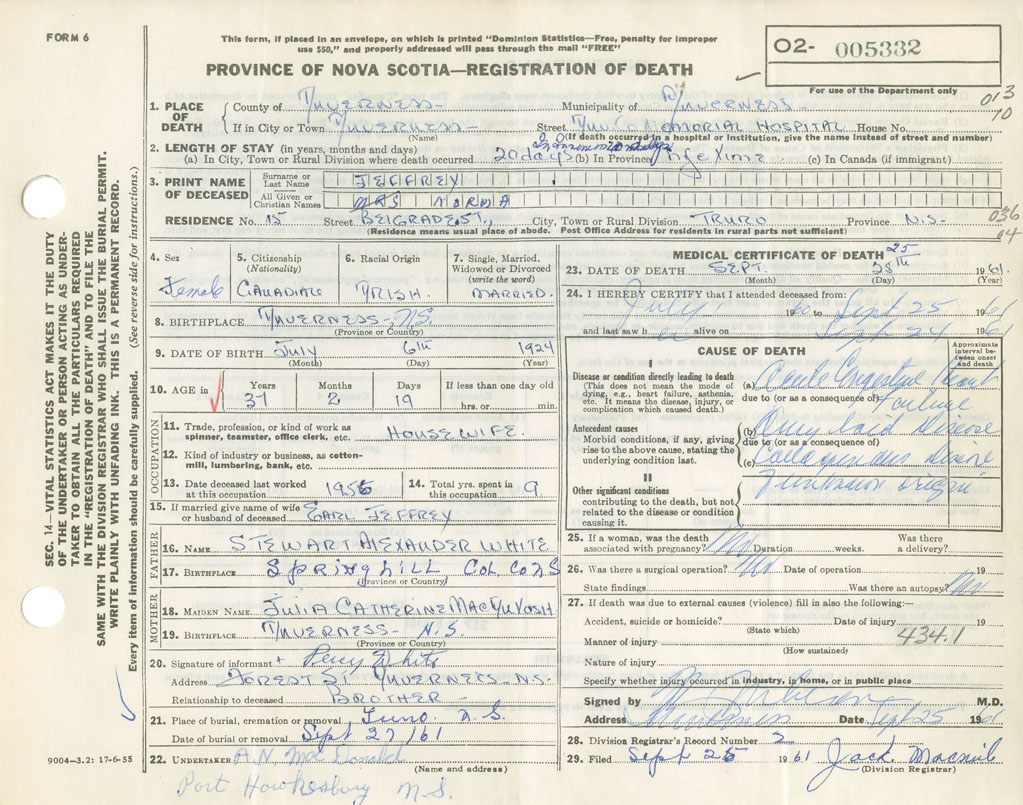 FORM 6
This form, if placed in an envelope, on which is printed "Dominion Statistics—Free, penalty for improper
use $50," and properly addressed will pass through the mail "FREE"
PROVINCE OF NOVA SCOTIA—REGISTRATION OF DEATH
O2- 005332
For use of the Department only
013
10
1. PLACE OF DEATH
County of INVERNESS— Municipality of INVERNESS—
If in City or Town INVERNESS— Street MEMORIAL HOSPITAL House No.
(Name) (If death occurred in a hospital or institution, give the name instead of street and number)
2. LENGTH OF STAY (in years, months and days)
(a) In City, Town or Rural Division where death occurred 20 days (b) In Province Life time (c) In Canada (if immigrant)
3. PRINT NAME OF DECEASED
Surname or Last Name JEFFREY
All Given or Christian Names MRS NORMA
RESIDENCE No. 15 Street BELGRADE ST., City, Town or Rural Division TRURO Province N.S—
(Residence means usual place of abode. Post Office Address for residents in rural parts not sufficient)
036
04
4. Sex Female
5. Citizenship (Nationality) CANADIAN
6. Racial Origin IRISH.
7. Single, Married, Widowed or Divorced (write the word) MARRIED.
8. BIRTHPLACE INVERNESS—N.S.
(Province or Country)
9. DATE OF BIRTH July 6th 1924
(Month) (Day) (Year)
10. AGE in Years 37 Months 2 Days 19 If less than one day old hrs. or min.
OCCUPATION
11. Trade, profession, or kind of work as spinner, teamster, office clerk, etc. HOUSEWIFE.
12. Kind of industry or business, as cotton-mill, lumbering, bank, etc.
13. Date deceased last worked at this occupation
14. Total yrs. spent in this occupation 9
15. If married give name of wife or husband of deceased EARL JEFFREY
FATHER
16. NAME STEWART ALEXANDER WHITE
17. BIRTHPLACE Springhill Col. Co NS
(Province or Country)
MOTHER
18. MAIDEN NAME JULIA CATHERINE MACINTOSH
19. BIRTHPLACE INVERNESS— N.S.
(Province or Country)
20. Signature of informant + Percy White
Address FOREST ST INVERNESS—N.S.
Relationship to deceased BROTHER—
21. Place of burial, cremation or removal Truro. N.S.
Date of burial or removal Sept 27/61
22. UNDERTAKER A.N. MacDonald
(Name and address)
Port Hawkesbury N.S.
MEDICAL CERTIFICATE OF DEATH
23. DATE OF DEATH SEPT. 25 th 1961
(Month) (Day) (Year)
24. I HEREBY CERTIFY that I attended deceased from:
July 1960 to Sept 25 1961
and last saw h alive on Sept 24 1961
CAUSE OF DEATH
Approximate interval between onset and death
I
Disease or condition directly leading to death
(This does not mean the mode of dying, e.g., heart failure, asthenia, etc. It means the disease, injury, or complication which caused death.)
(a) Acute Congestive Heart
due to (or as a consequence of) Failure
Antecedent causes
Morbid conditions, if any, giving rise to the above cause, stating the underlying condition last.
(b) Amyloid Disease
due to (or as a consequence of)
(c) Collagenous Disease
II
Other significant conditions
contributing to the death, but not related to the disease or condition causing it.
Unknown origin
25. If a woman, was the death associated with pregnancy? No Duration weeks. Was there a delivery?
26. Was there a surgical operation? No Date of operation 19
State findings Was there an autopsy? No
27. If death was due to external causes (violence) fill in also the following:—
Accident, suicide or homicide? Date of injury 19
(State which)
434.1
Manner of injury
(How sustained)
Nature of injury
Specify whether injury occurred in industry, in home, or in public place
Signed by M.D.
Address Inverness Date Sept 25 1961
28. Division Registrar's Record Number 2
29. Filed Sept 25 1961 Jack Macneil
(Division Registrar)
SEC. 14—VITAL STATISTICS ACT MAKES IT THE DUTY
OF THE UNDERTAKER OR PERSON ACTING AS UNDER-
TAKER TO OBTAIN ALL THE PARTICULARS REQUIRED
IN THE "REGISTRATION OF DEATH" AND TO FILE THE
SAME WITH THE DIVISION REGISTRAR WHO SHALL ISSUE THE BURIAL PERMIT.
WRITE PLAINLY WITH UNFADING INK. THIS IS A PERMANENT RECORD.
Every item of information should be carefully supplied. (See reverse side for instructions.)
9004—3.2: 17-6-55